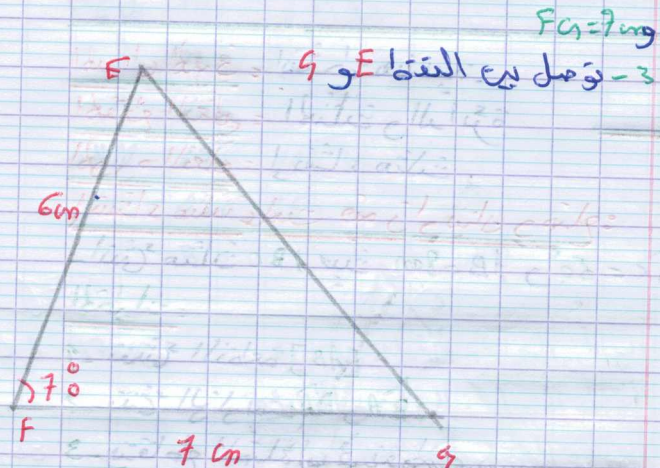 و FG=7cm
3- نوصل بين النقط E و G
E
6cm
70°
F
7 cm
G